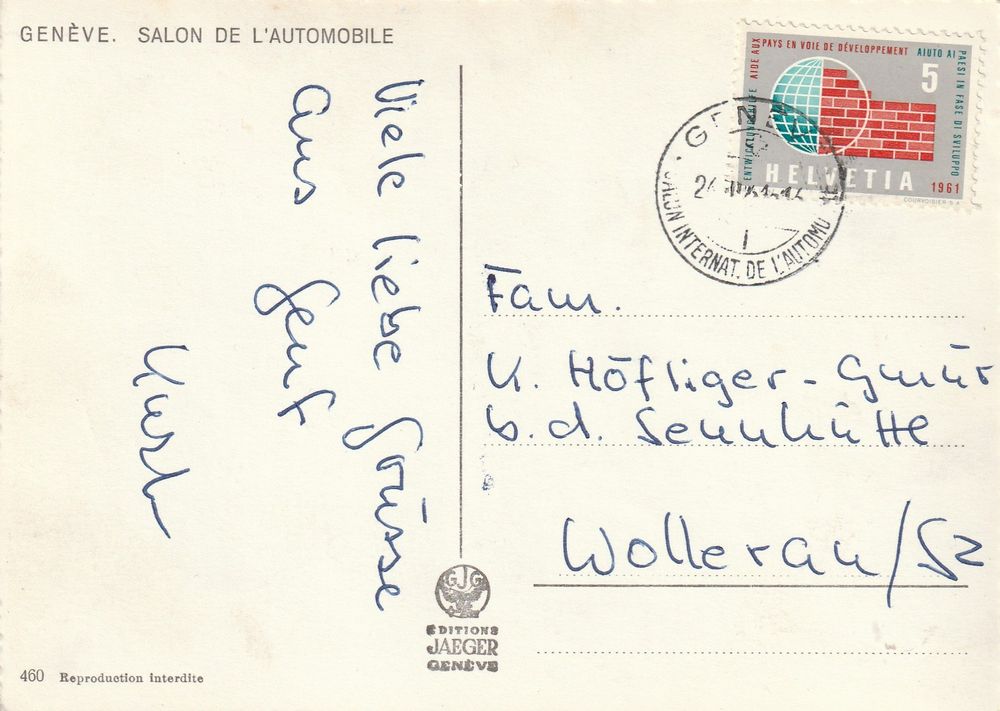 GENÈVE. SALON DE L'AUTOMOBILE
Viele liebe Grüsse
aus Genf
Kurt
AIDE AUX PAYS EN VOIE DE DÉVELOPPEMENT
AIUTO AI PAESI IN FASE DI SVILUPPO
ENTWICKLUNGSHILFE
5
HELVETIA
1961
COURVOISIER S.A.
GENÈVE
SALON INTERNAT. DE L'AUTOMO
1
Fam.
K. Höfliger-Gmür
b. d. Sennhütte
Wollerau/Sz
GJG
EDITIONS
JAEGER
GENÈVE
460 Reproduction interdite